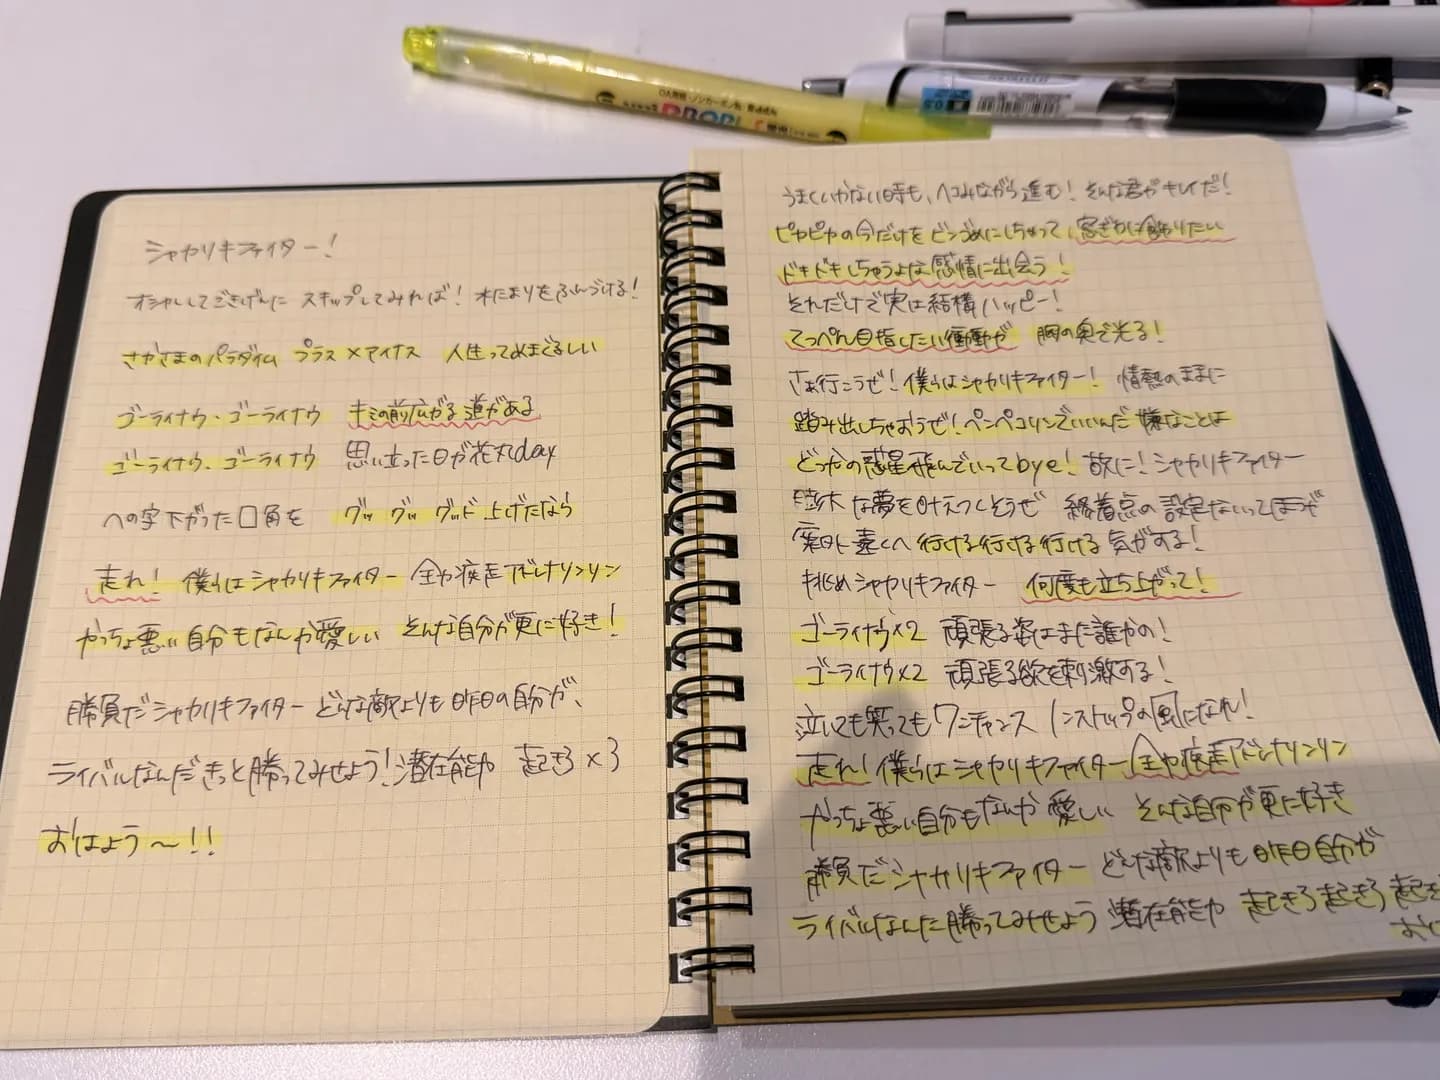 シャカリキファイター!
オシャレしてごきげんに スキップしてみれば! 水たまりをふんづける!
さかさまのパラダイム プラス×マイナス 人生ってめまぐるしい
ゴーライナウ・ゴーライナウ キミの前広がる道がある
ゴーライナウ、ゴーライナウ 思い立った日が花丸day
への字下がった口角を グッ グッ グッド 上げたなら
走れ! 僕らはシャカリキファイター 全力疾走アドレナリンリン
かっちょ悪い自分もなんか愛しい そんな自分が更に好き!
勝負だシャカリキファイター どんな敵よりも昨日の自分が、
ライバルなんだきっと勝ってみせよう! 潜在能力 起きろ×3
おはよう〜!!
うまくいかない時も、ヘコみながら進む! そんな君がキレイだ!
ピカピカの今だけをビン づめにしちゃって、窓ぎわに飾りたい
ドキドキしちゃうような感情に出会う!
それだけで実は結構ハッピー!
てっぺん目指したい衝動が 胸の奥で光る!
さぁ行こうぜ! 僕らはシャカリキファイター! 情熱のままに
踏み出しちゃおうぜ! ペンペコリンでいいんだ 嫌なことは
どっかの惑星飛んでいってbye! 故に! シャカリキファイター
壮大な夢を叶えつくそうぜ 終着点の設定ないってほうが
案外遠くへ 行ける行ける行ける 気がする!
挑めシャカリキファイター 何度も立ち上がって!
ゴーライナウ×2 頑張る姿はまだ誰かの!
ゴーライナウ×2 頑張る欲を刺激する!
泣いても笑ってもワンチャンス ノンストップの風になれ!
走れ! 僕らはシャカリキファイター 全力疾走アドレナリンリン
かっちょ悪い自分もなんか愛しい そんな自分が更に好き
勝負だシャカリキファイター どんな敵よりも昨日自分が
ライバルなんだ勝ってみせよう 潜在能力 起きろ起きろ起き
おは